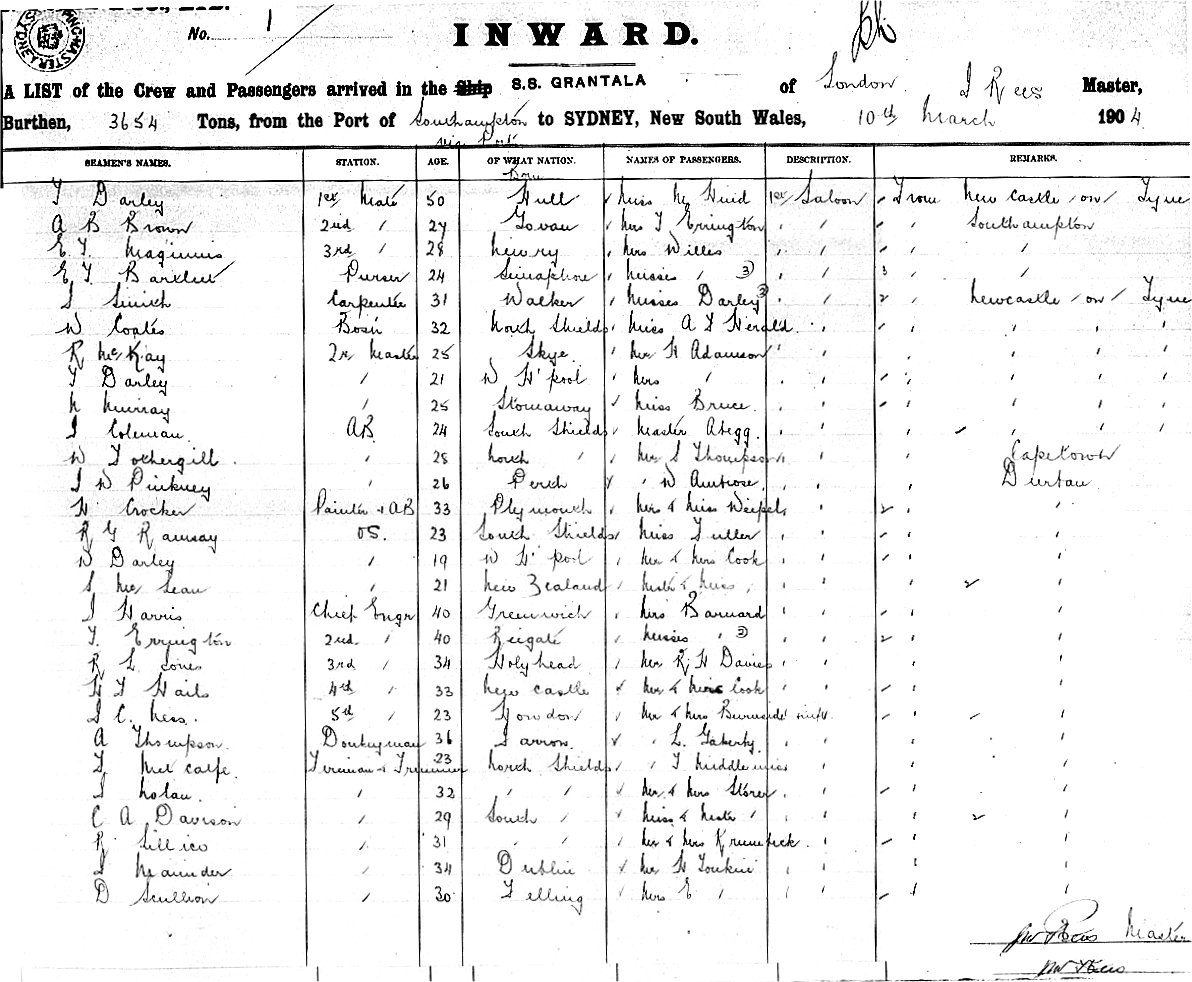 No. 1
INWARD.
A LIST of the Crew and Passengers arrived in the Ship S.S. GRANTALA of London J Rees Master,
Burthen, 3654 Tons, from the Port of Southampton to SYDNEY, New South Wales, 10th March 1904
via Ports
SEAMEN'S NAMES. STATION. AGE. OF WHAT NATION. NAMES OF PASSENGERS. DESCRIPTION. REMARKS.
T Darley 1st Mate 50 Hull Miss Mc Hind 1st Saloon From New Castle on Tyne
A B Brown 2nd " 27 Govan Mrs T Errington " " " Southampton
E. T. Maginnis 3rd " 28 Newry Mrs Willes " " " "
E T Purser 24 Semaphore Misses " 3 " " 3 "
J Smith Carpenter 31 Walker Misses Darley 3 " " 2 Newcastle on Tyne
W Coates Bosn 32 North Shields Miss A Herald " " " " "
R McKay 2r Master 25 Skye Mr H Adamson " " " " " "
T Darley " 21 W H'pool Mrs " " " " " " "
M Murray " 25 Stornaway Miss Bruce " " " " " "
J Coleman AB 24 South Shields Master Abegg " " " " " "
W Fothergill " 28 North " Mr S Thompson " " " Capetown
J W Pinkney " 26 Perth " W Ambrose " " " Durban
H Crocker Painter & AB 33 Plymouth Mrs & Miss " " 2 " "
R G Ramsay OS. 23 South Shields Miss Fuller " " " "
W Darley " 19 W H'pool Mr & Mrs Cook " " " "
S McLean " 21 New Zealand Master & Miss " " " " 2 "
J Harris Chief Engr 40 Greenwich Mrs Barnard " " " "
T. Errington 2nd " 40 Reigate Misses " 2 " " 2 " "
R L Jones 3rd " 34 Holyhead Mr R H Davies " " " "
H T Hails 4th " 33 New castle Mr & Miss Cook " " " "
J C. Ness. 5th " 23 Howdon Mr & Mrs Burnside " " " "
A Thompson. Donkeyman 36 Jarrow. " L. " " " "
T Metcalfe. Fireman & Trimmer 23 North Shields " T Middlemiss " " "
J Nolan. " 32 " " Mr & Mrs Storer " " " "
C A Davison " 29 South " Miss & Master " " " 2 "
R Sillico " 31 " " Mr & Mrs " " " "
J Maunder " 34 Dublin Mr H Tonkin " " " "
D Scullion " 30 Felling Mrs E " " " " "
JW Rees Master
JW Rees